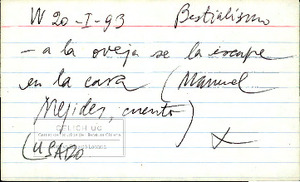 W 20-I-93 Bestialismo
- a la oveja se la escape
en la cara (Manuel
Mejides, cuento)
(USADO X
CELICH UC